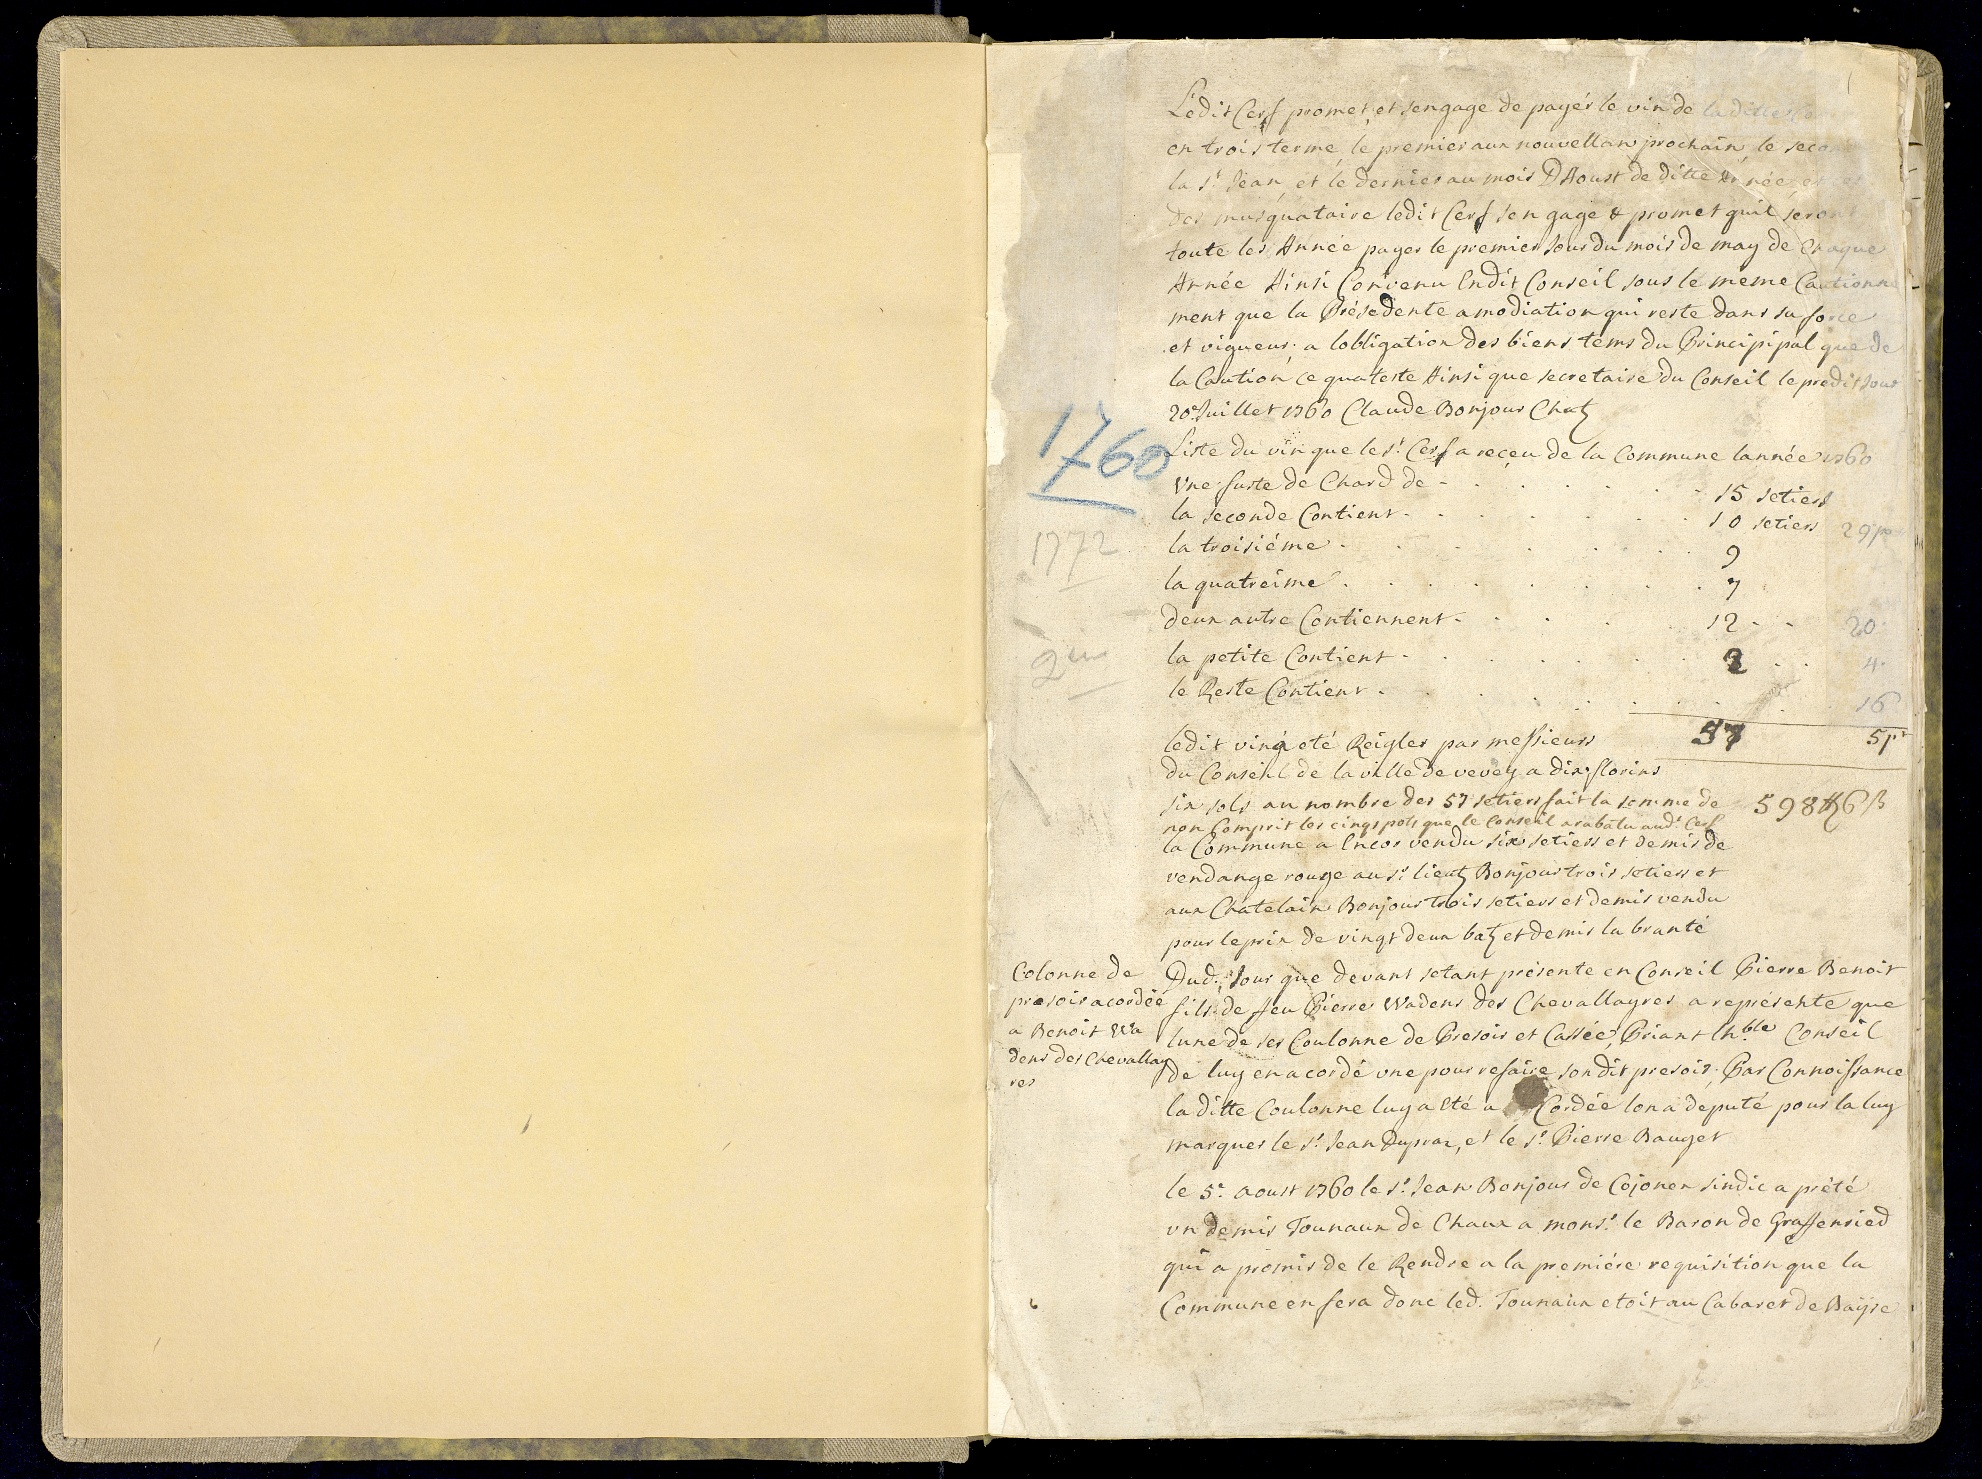 1
Ledit Cerf promet, et sengage de payér le vin de la ditte
en trois terme le premier aux nouvellan prochain, le secon
la St. Jean, et le dernier au mois DAoust de ditte Année, et
des musquataire ledit Cerf sengage & promet quil seront
toute les Année payer le premier Jour du mois de may de Chaque
Année Ainsi Convenu Endit Conseil sous le meme Cautionne
ment que la Présedente amodiation qui reste dans sa force
et vigueur; a lobligation des biens tems du Principipal que de
la Caution, ce quateste Ainsi que secretaire du Conseil le predit Jour
20e. Juillet 1760 Claude Bonjour Chatz
1760
Liste du vin que le Sr. Cerf a reçeu de la Commune lannée 1760
Une fuste de Chard de - 15 setiers
la seconde Contient - 10 setiers 29 po
1772
la troisiéme - 9
la quatreime - 7
deux autre Contiennent - 12 - - 20
2um
la petite Contient - 2 4.
le Reste Contient - 16
57 5 pt
ledit vin a eté Reigler par messieurs
du Conseil de la ville de vevey a dix florins
six sols au nombre des 57 setiers fait la somme de 598 ff 6 ß
non Comprit les cinqs pots que le Conseil a rabatu aud. Cerf
la Commune a Encor vendu six setiers et demis de
vendange rouge au Sr. lieutz Bonjour trois setiers et
aux Chatelain Bonjour trois setiers et demis vendu
pour le prix de vingt deux batz et demis la branté
Colonne de
presoir acordée
a Benoit Wa
dens des Chevallay
res
Dud. Jour que devant setant présente en Conseil Pierre Benoit
fils de ffeu Pierre Wadens des Chevallayres a représente que
lune de ses Coulonne de Presoir et Cassée, Priant lh.ble Conseil
de luy en acordé une pour refaire sondit presoir; Par Connoissance
la ditte Coulonne luy a Eté a Cordée lon a deputé pour la luy
marquer le Sr. Jean Dupraz, et le Sr. Pierre Bauget
le 5e. aoust 1760 le Sr. Jean Bonjour de Cojonex sindic a prété
un demis Tounaux de Chaux a monsr. le Baron de Graffenried
qui a promis de le Rendre a la premiére requisition que la
Commune en fera donc led. Tounaux etoit au Cabaret de Bayse